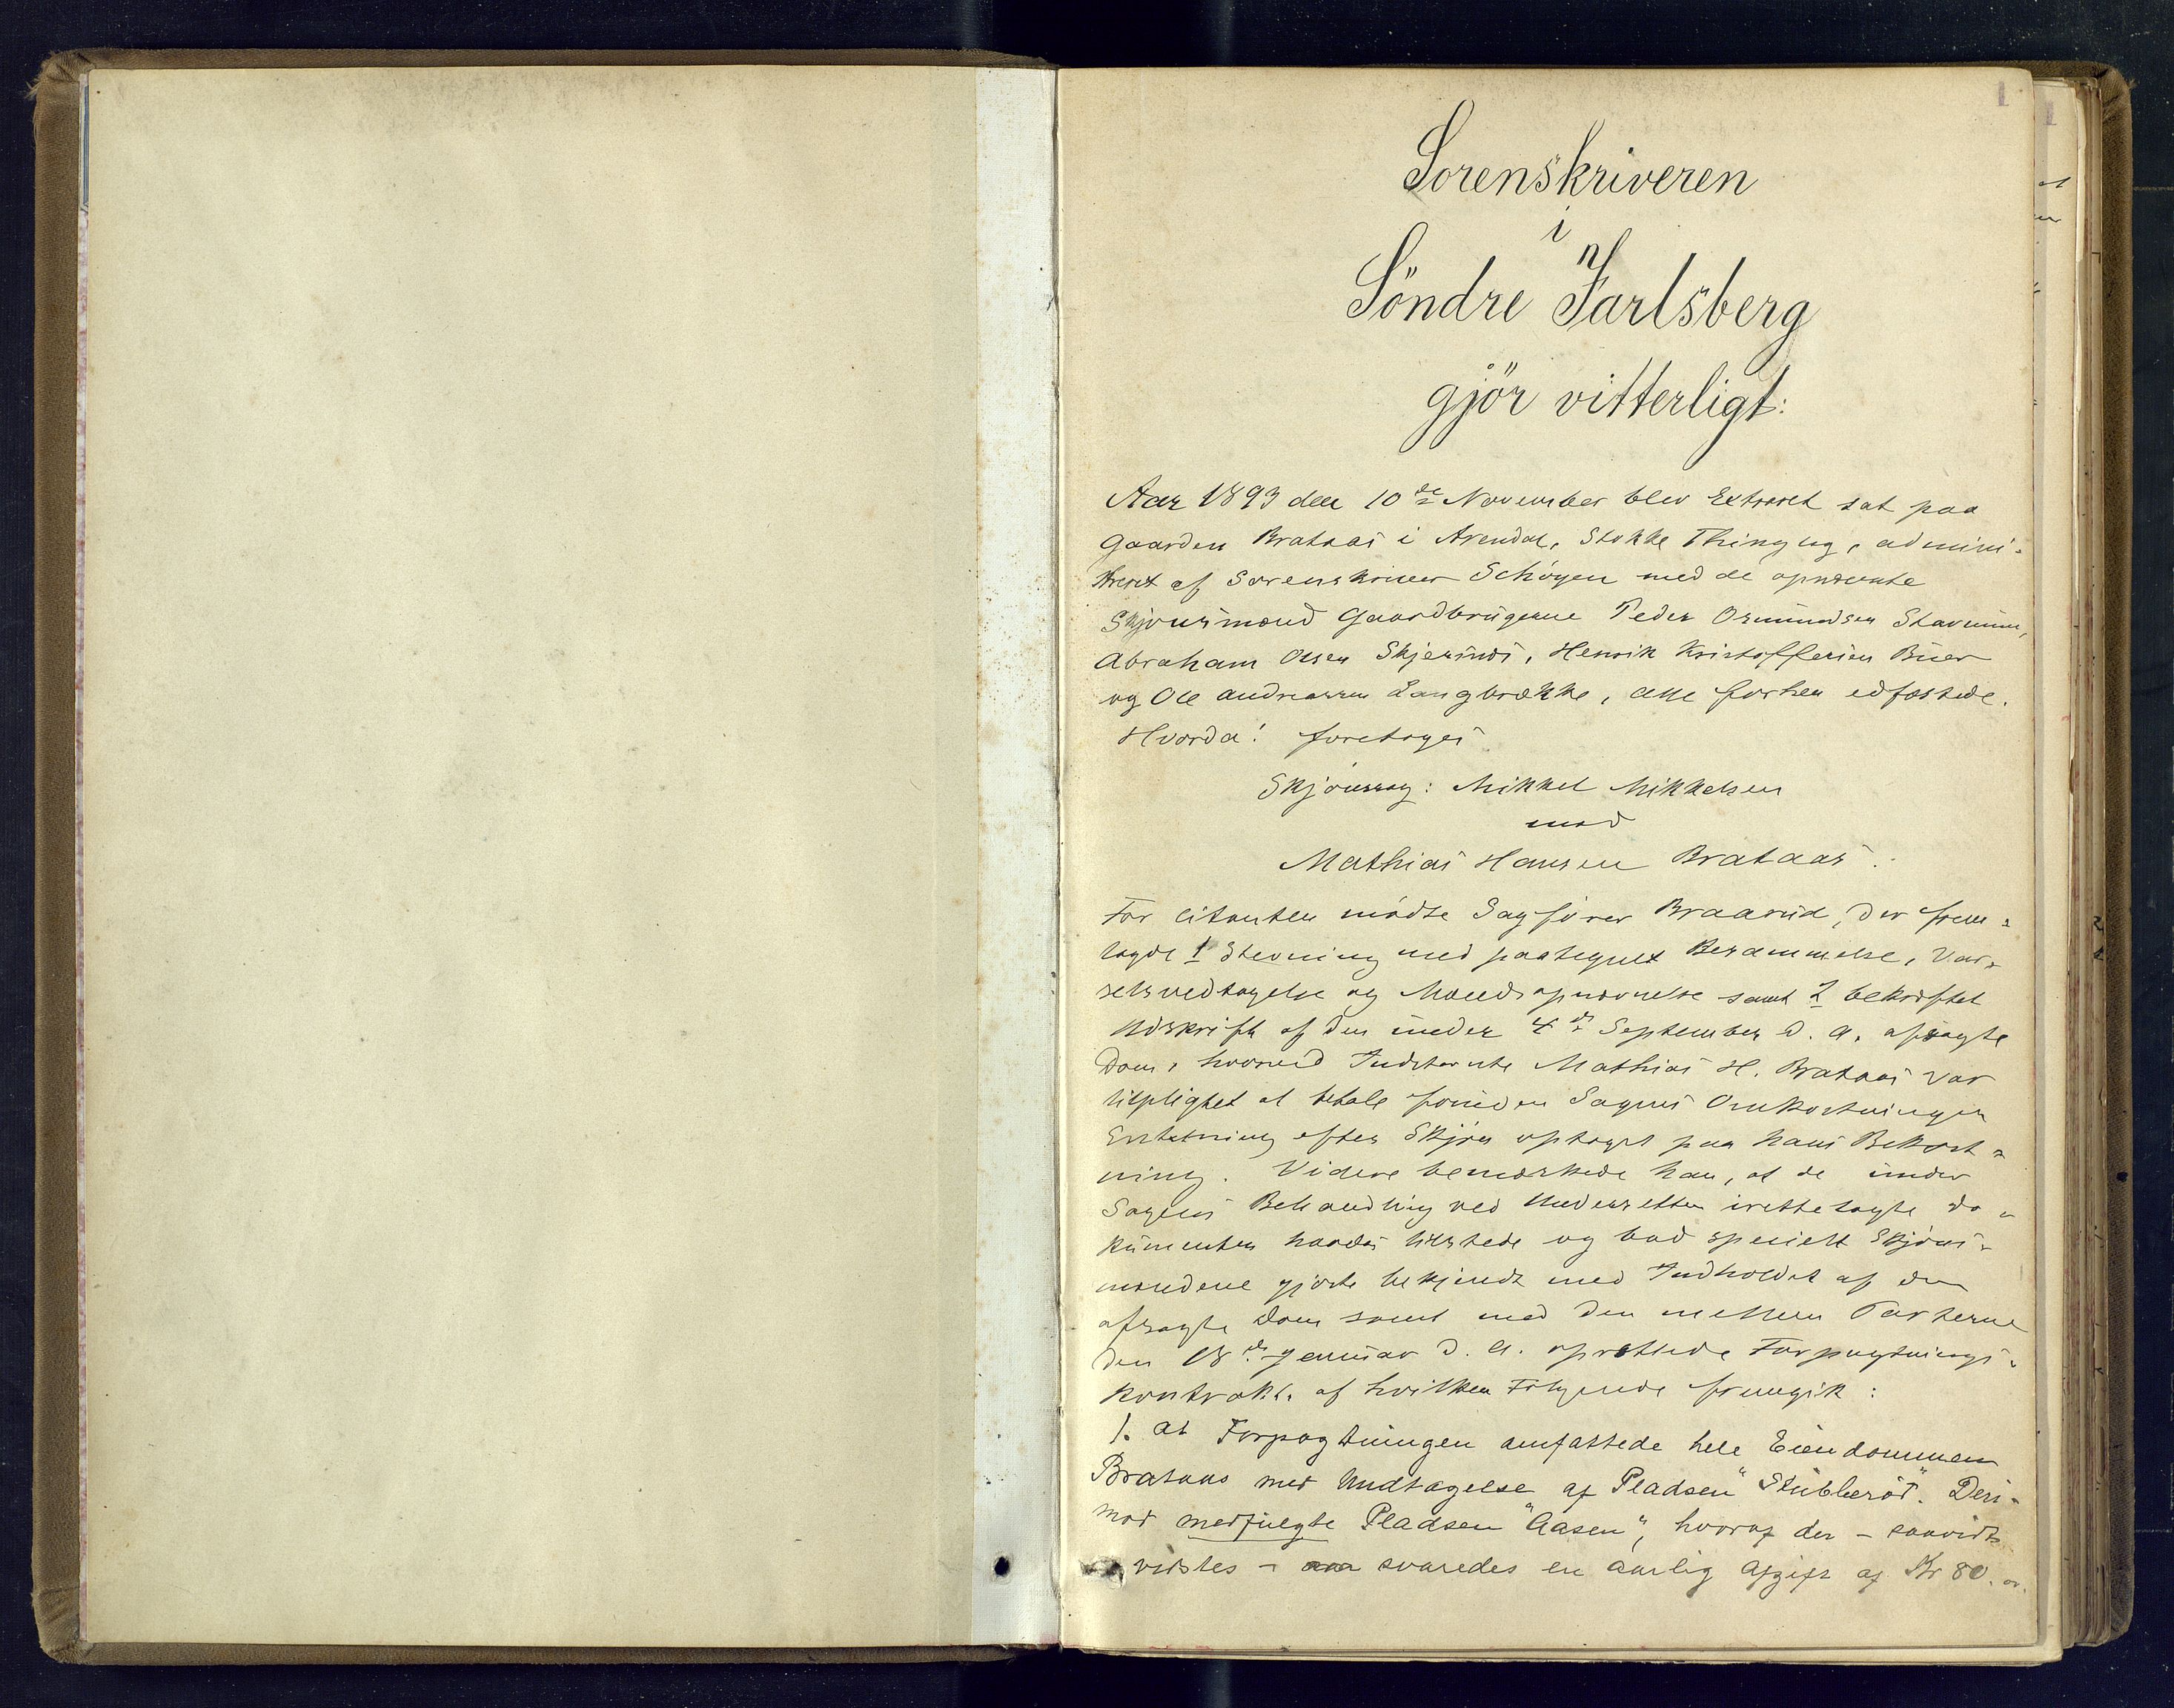 1
Sorenskriveren
i
Söndre Jarlsberg
gjör vitterligt:
Aar 1893 den 10de November blev Extraret sat paa
Gaarden Brataas i Arendal, Stokke Thinglag, admini-
streret af Sorenskriver Schöyen med de opnævnte
Skjönsmænd Gaardbrugerne Peder Osmundsen Stavnum,
Abraham Olsen Skjersnæs, Henrik Kristoffersen Buer
og Ole Andreassen Langbrække, alle forhen edfæstede.
Hvorda! foretoges
Skjönssag: Mikkel Mikkelsen
mod
Mathias Hansen Brataas.
For Citanten mödte Sagförer Braarud, der frem-
lagde 1 Stevning med paategnet Berammelse, Var-
selsvedtagelse og Mændsopnævnelse samt 2 bekræftet
Udskrift af den under 4de September d. A. afsagte
Dom, hvorved Indstevnte Mathias H. Brataas var
tilpligtet at betale foruden Sagens Omkostninger
Erstatning efter Skjön optaget paa hans Bekost-
ning. Videre bemærkede han, at de under
Sagens Behandling ved Underretten irettelagte Do-
kumenter havdes tilstede og bad specielt Skjöns-
mændene gjorte bekjendt med Indholdet af den
afsagte Dom samt med den mellem Parterne
den 18de Januar d. A. oprettede Forpagtnings-
kontrakt, af hvilken Fölgende fremgik:
1. at Forpagtningen omfattede hele Eiendommen
Brataas med Undtagelse af Pladsen "Stubberöd". Deri-
mod medfulgte Pladsen "Aasen", hvoraf der – saavidt
vidstes – svaredes en aarlig Afgift af Kr 80.